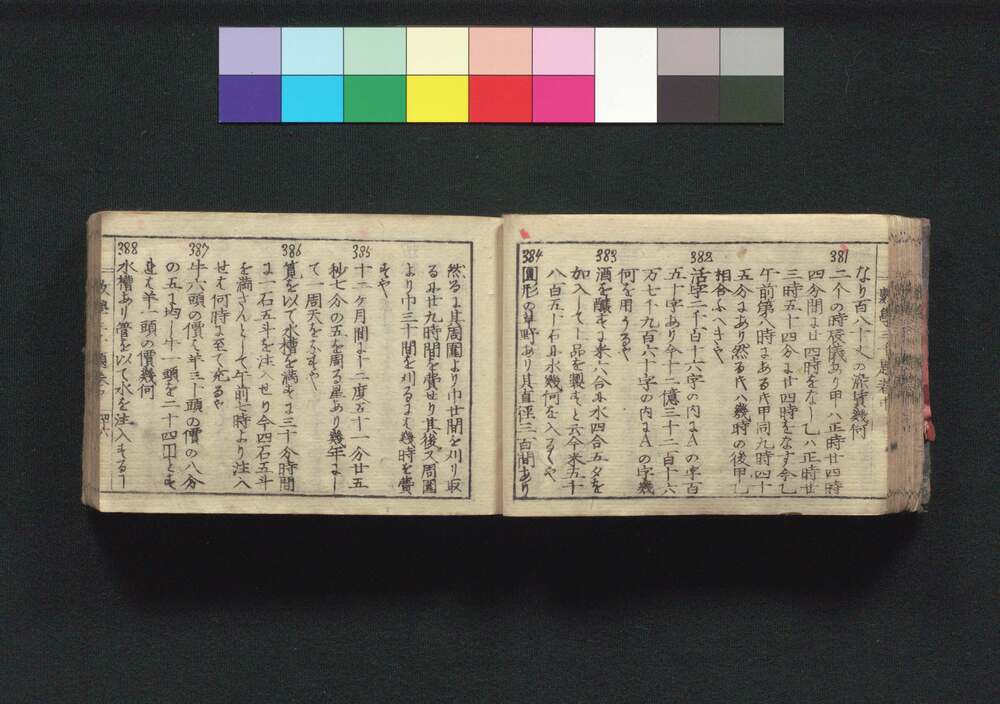 なり百八十人の染賃幾何
381
二个の時辰儀あり甲ハ正時廿四時
四分間に廿四時をなし乙ハ正時廿
三時五十四分に廿四時をなす今乙
午前第八時にある氏甲同九時四十
五分にあり然る氏ハ幾時の後甲乙
相合ふへきや
382
活字二千百十六字の内にAの字百
五十字あり今十二億三千二百十六
万七千九百六十字の内にAの字幾
何を用うるや
383
酒を醸すに米八合に水四合五夕を
加入して上品を製すと云今米五千
八百五十石に水幾何を入るゝや
384
圓形の草野あり其直徑三百間あり
然るに其周圍より巾廿間を刈り取
るに廿九時間を費せり其後又周圍
より巾三十間を刈るに幾時を費
すや
385
十二ヶ月間に十二度五十一分廿五
秒七分の五を周る星あり幾年にし
て一周天をなすや
386
筧を以て水槽を満すに三十分時間
に一石五斗を注入せり今四石五斗
を満さんとして午前七時より注入
せは何時に至て充るや
387
牛六頭の價は羊三十頭の價の八分
の五に均し牛一頭を二十四円とす
れは羊一頭の價幾何
388
水槽あり管を以て水を注入するに